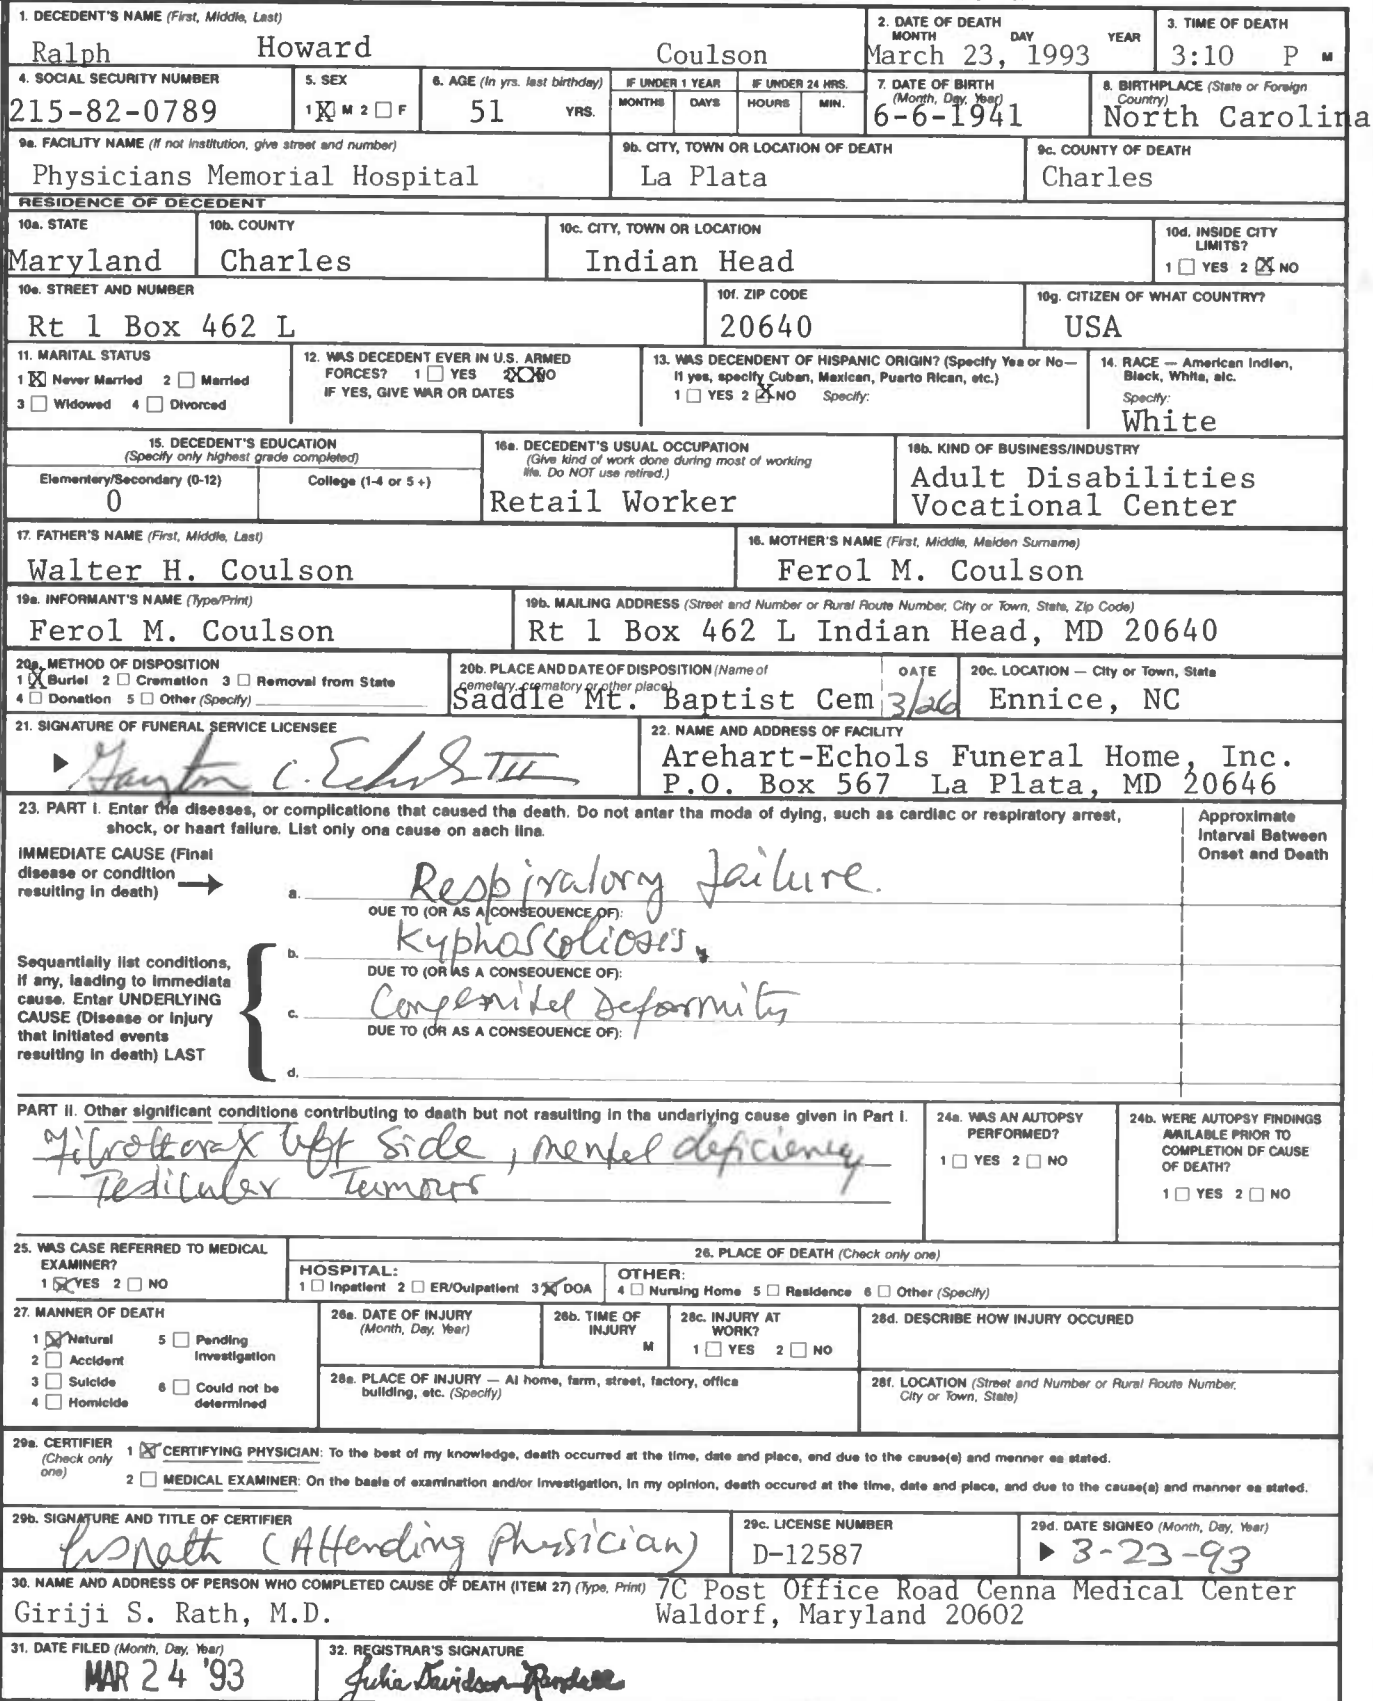 1. DECEDENT'S NAME (First, Middle, Last)
Ralph Howard Coulson
2. DATE OF DEATH
MONTH DAY YEAR
March 23, 1993
3. TIME OF DEATH
3:10 P M
4. SOCIAL SECURITY NUMBER
215-82-0789
5. SEX
1 X M 2 F
6. AGE (In yrs. last birthday)
51 YRS.
IF UNDER 1 YEAR
MONTHS DAYS
IF UNDER 24 HRS.
HOURS MIN.
7. DATE OF BIRTH
(Month, Day, Year)
6-6-1941
8. BIRTHPLACE (State or Foreign
Country)
North Carolina
9a. FACILITY NAME (If not institution, give street and number)
Physicians Memorial Hospital
9b. CITY, TOWN OR LOCATION OF DEATH
La Plata
9c. COUNTY OF DEATH
Charles
RESIDENCE OF DECEDENT
10a. STATE
Maryland
10b. COUNTY
Charles
10c. CITY, TOWN OR LOCATION
Indian Head
10d. INSIDE CITY
LIMITS?
1 YES 2 X NO
10e. STREET AND NUMBER
Rt 1 Box 462 L
10f. ZIP CODE
20640
10g. CITIZEN OF WHAT COUNTRY?
USA
11. MARITAL STATUS
1 X Never Married 2 Married
3 Widowed 4 Divorced
12. WAS DECEDENT EVER IN U.S. ARMED
FORCES? 1 YES 2 XX NO
IF YES, GIVE WAR OR DATES
13. WAS DECENDENT OF HISPANIC ORIGIN? (Specify Yes or No—
If yes, specify Cuban, Mexican, Puerto Rican, etc.)
1 YES 2 X NO Specify:
14. RACE — American Indien,
Bleck, White, etc.
Specify:
White
15. DECEDENT'S EDUCATION
(Specify only highest grade completed)
Elementery/Secondary (0-12)
0
College (1-4 or 5 +)
16a. DECEDENT'S USUAL OCCUPATION
(Give kind of work done during most of working
life. Do NOT use retired.)
Retail Worker
16b. KIND OF BUSINESS/INDUSTRY
Adult Disabilities
Vocational Center
17. FATHER'S NAME (First, Middle, Last)
Walter H. Coulson
16. MOTHER'S NAME (First, Middle, Maiden Surname)
Ferol M. Coulson
19a. INFORMANT'S NAME (Type/Print)
Ferol M. Coulson
19b. MAILING ADDRESS (Street and Number or Rural Route Number, City or Town, State, Zip Code)
Rt 1 Box 462 L Indian Head, MD 20640
20a. METHOD OF DISPOSITION
1 X Buriel 2 Cremation 3 Removal from State
4 Donation 5 Other (Specify)
20b. PLACE AND DATE OF DISPOSITION (Name of
cemetery, crematory or other place)
Saddle Mt. Baptist Cem
DATE
3/26
20c. LOCATION — City or Town, State
Ennice, NC
21. SIGNATURE OF FUNERAL SERVICE LICENSEE
22. NAME AND ADDRESS OF FACILITY
Arehart-Echols Funeral Home, Inc.
P.O. Box 567 La Plata, MD 20646
23. PART I. Enter the diseases, or complications that caused the death. Do not enter the mode of dying, such as cardiac or respiratory arrest,
shock, or heart failure. List only one cause on each line.
Approximate
Interval Between
Onset and Death
IMMEDIATE CAUSE (Final
disease or condition
resulting in death)
a. Respiratory failure.
DUE TO (OR AS A CONSEQUENCE OF):
b. Kyphoscoliosis.
DUE TO (OR AS A CONSEQUENCE OF):
c. Congenital Deformity
DUE TO (OR AS A CONSEQUENCE OF):
d.
Sequentially list conditions,
if any, leading to immediate
cause. Enter UNDERLYING
CAUSE (Disease or injury
that initiated events
resulting in death) LAST
PART II. Other significant conditions contributing to death but not resulting in the underlying cause given in Part I.
Fibrothorax left side, mental deficiency
Testicular Tumour
24a. WAS AN AUTOPSY
PERFORMED?
1 YES 2 NO
24b. WERE AUTOPSY FINDINGS
AVAILABLE PRIOR TO
COMPLETION OF CAUSE
OF DEATH?
1 YES 2 NO
25. WAS CASE REFERRED TO MEDICAL
EXAMINER?
1 X YES 2 NO
26. PLACE OF DEATH (Check only one)
HOSPITAL:
1 Inpatient 2 ER/Outpatient 3 X DOA
OTHER:
4 Nursing Home 5 Residence 6 Other (Specify)
27. MANNER OF DEATH
1 X Natural 5 Pending
Investigation
2 Accident
3 Suicide 6 Could not be
determined
4 Homicide
28a. DATE OF INJURY
(Month, Day, Year)
28b. TIME OF
INJURY
M
28c. INJURY AT
WORK?
1 YES 2 NO
28d. DESCRIBE HOW INJURY OCCURED
28e. PLACE OF INJURY — At home, farm, street, factory, office
building, etc. (Specify)
28f. LOCATION (Street and Number or Rural Route Number,
City or Town, State)
29a. CERTIFIER
(Check only
one)
1 X CERTIFYING PHYSICIAN: To the best of my knowledge, death occurred at the time, date and place, and due to the cause(s) and manner as stated.
2 MEDICAL EXAMINER: On the basis of examination and/or investigation, in my opinion, death occured at the time, date and place, and due to the cause(s) and manner as stated.
29b. SIGNATURE AND TITLE OF CERTIFIER
GSRath (Attending Physician)
29c. LICENSE NUMBER
D-12587
29d. DATE SIGNED (Month, Day, Year)
3-23-93
30. NAME AND ADDRESS OF PERSON WHO COMPLETED CAUSE OF DEATH (ITEM 27) (Type, Print)
Giriji S. Rath, M.D.
7C Post Office Road Cenna Medical Center
Waldorf, Maryland 20602
31. DATE FILED (Month, Day, Year)
MAR 24 '93
32. REGISTRAR'S SIGNATURE
Julia Davidson-Randall